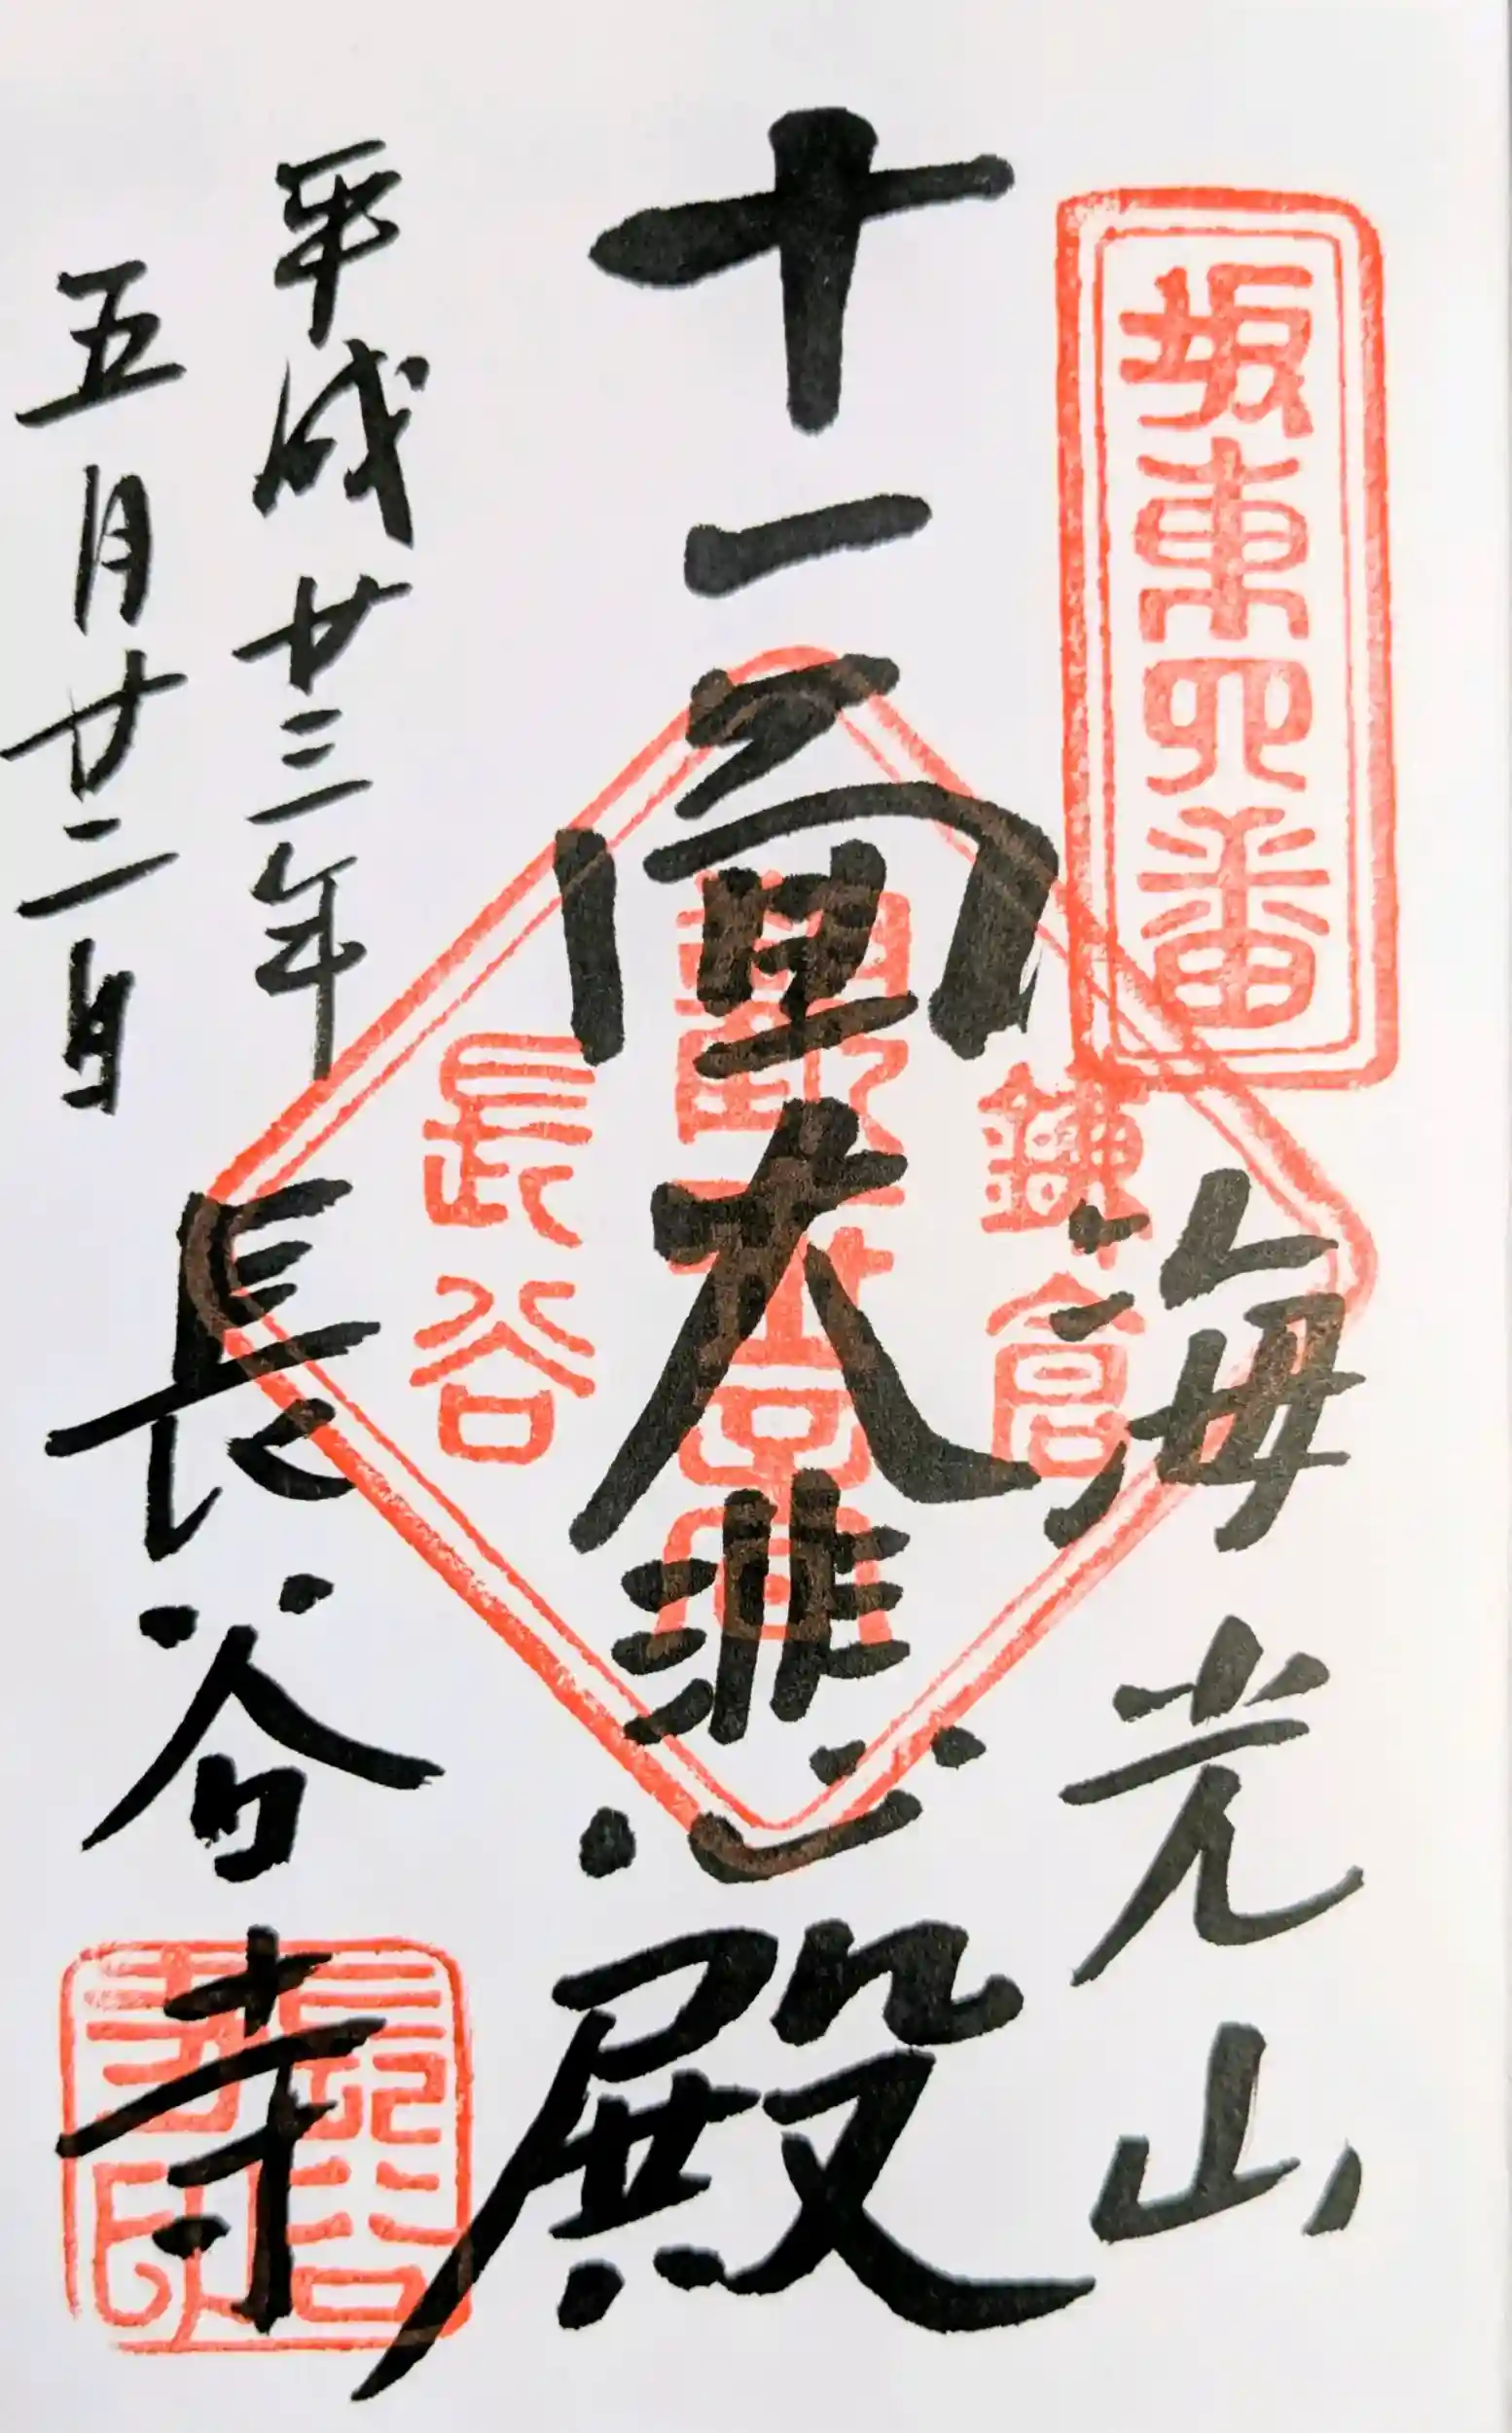 坂東四番
海光山
鎌倉
十一面大悲殿
長谷
平成廿三年
五月廿二日
長谷寺
長谷寺印